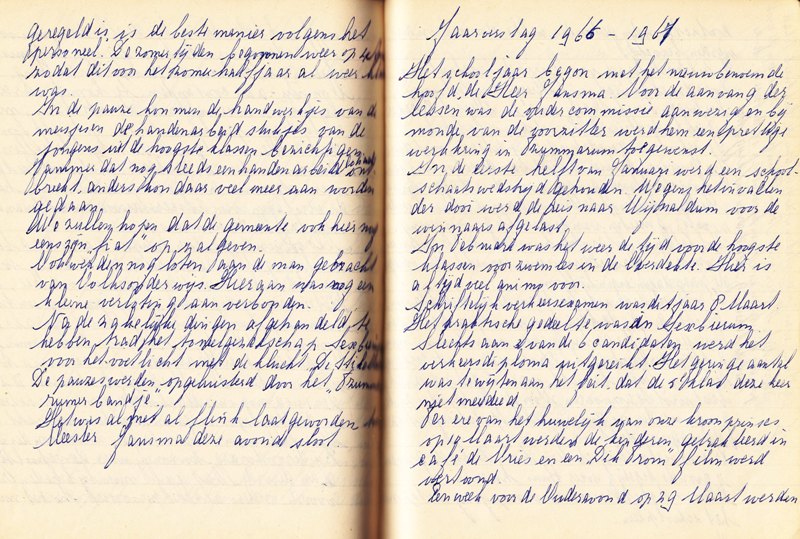 geregeld is is de beste manier volgens het
personeel. De zomertijden begonnen weer op
zodat dit oon het zomerhalfjaar al weer
was.
In de pauze kon men de handwerkjes van de
meisjes en de handenarbeid stukjes van de
jongens uit de hoogste klassen bezichtigen.
Jammer dat nog steeds een handenarbeid lokaal ont
breekt, anders kon daar veel meer aan worden
gedaan.
We zullen hopen dat de gemeente ook hier nog
eens zijn "fiat" op zal geven.
Ook werden nog loten aan de man gebracht
van Volksonderwijs. Hieraan was nog een
kleine verloting aan verbonden.
Na de zakelijke dingen afgehandeld te
hebben, had het toneelgezelschap Sexbierum
voor het voetlicht met de klucht De
De pauzes werden opgeluisterd door het
rumer bandje".
Het was al met al flink laat geworden
Meester Jansma deze avond sloot.
Jaarverslag 1966 - 1967
Het schooljaar begon met het nieuwbenoemde
hoofd, de Heer Jansma. Voor de aanvang der
lessen was de oudercommissie aanwezig en bij
monde van de voorzitter werd hem een prettige
werkkring in Tzummarum toegewenst.
In de eerste helft van Januari werd een school-
schaatswedstrijd gehouden. Wegens het invallen
der dooi werd de reis naar Wijnaldum voor de
winnaars afgelast.
In Februarie was het weer de tijd voor de hoogste
klassen voor zwemles in de Bleerdente. Hier is
altijd veel animo voor.
Schriftelijk verkeersexamen was dit jaar 8 Maart.
Het praktische gedeelte was in Sexbierum.
Slechts aan 3 van de 6 candidaten werd het
verkeersdiploma uitgereikt. Het geringe aantal
was te wijten aan het feit, dat de 5e klas deze keer
niet meedeed.
Ter ere van het huwelijk van onze kroonprinses
op 10 Maart werden de kinderen getrakteerd in
café de Vries en een "Dik Trom" film werd
vertoond.
Een week voor de Ouderavond op 29 Maart werden